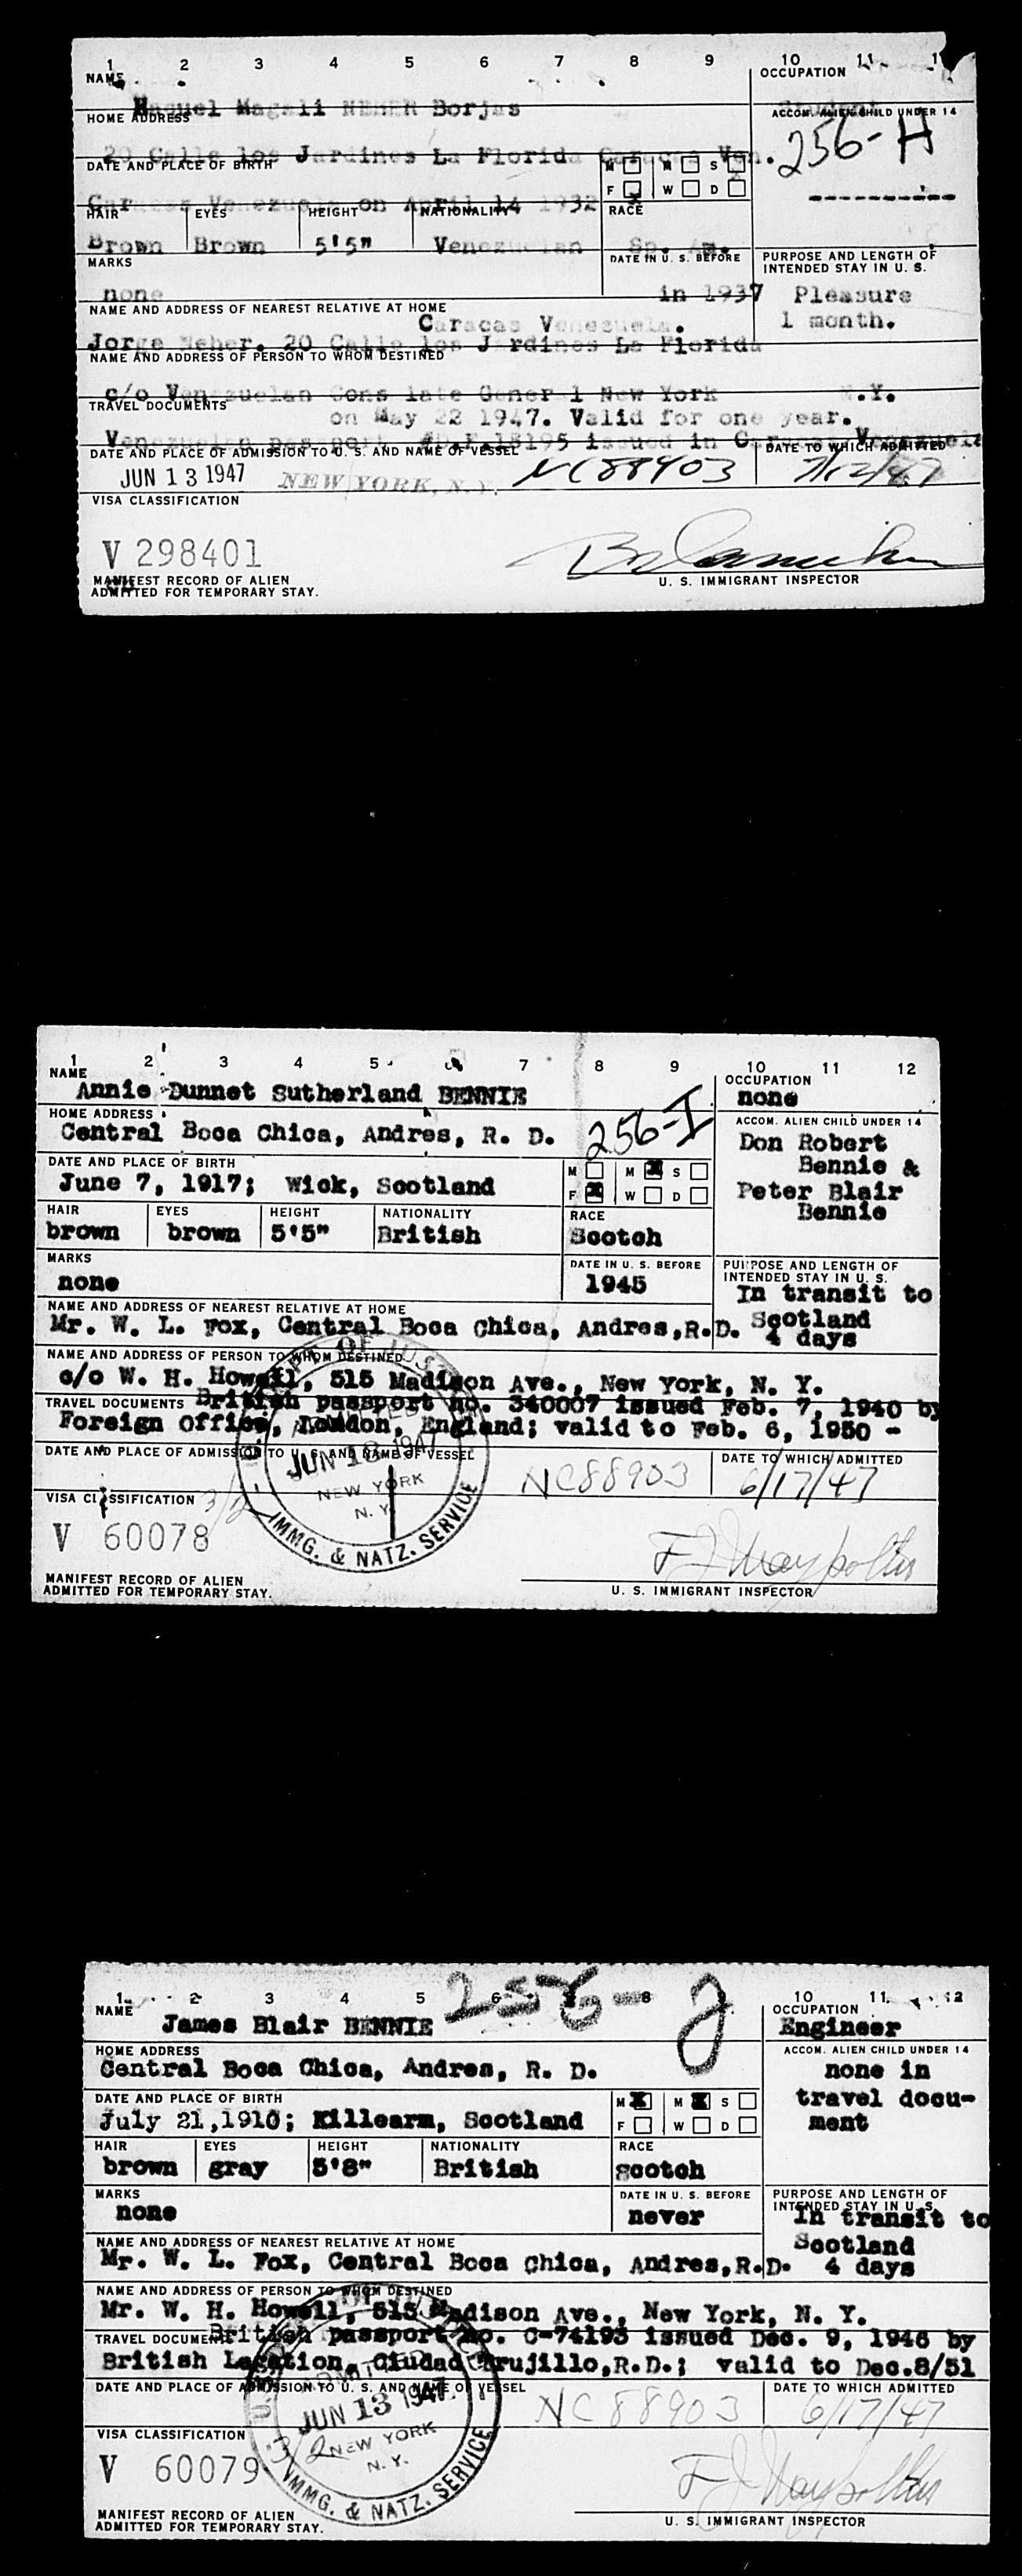 1 2 3 4 5 6 7 8 9 10 11 1
NAME OCCUPATION
Raquel Magali NEHER Borjas Student
HOME ADDRESS ACCOM. ALIEN CHILD UNDER 14
20 Calle los Jardines La Florida Caracas Ven. 256-H
DATE AND PLACE OF BIRTH M M S
F W D
Caracas Venezuela on April 14 1932
HAIR EYES HEIGHT NATIONALITY RACE
Brown Brown 5'5" Venezuelan Sp. Am.
MARKS DATE IN U. S. BEFORE PURPOSE AND LENGTH OF
INTENDED STAY IN U. S.
none in 1937 Pleasure
NAME AND ADDRESS OF NEAREST RELATIVE AT HOME
Caracas Venezuela. 1 month.
Jorge Neher. 20 Calle los Jardines La Florida
NAME AND ADDRESS OF PERSON TO WHOM DESTINED
c/o Venezuelan Consulate General New York N.Y.
TRAVEL DOCUMENTS
on May 22 1947. Valid for one year.
Venezuelan passport 15195 issued in Caracas Venezuela
DATE AND PLACE OF ADMISSION TO U. S. AND NAME OF VESSEL DATE TO WHICH ADMITTED
JUN 13 1947 NEW YORK, N.Y. NC88903 7/12/47
VISA CLASSIFICATION
V 298401
MANIFEST RECORD OF ALIEN
ADMITTED FOR TEMPORARY STAY.
U. S. IMMIGRANT INSPECTOR
1 2 3 4 5 6 7 8 9 10 11 12
NAME OCCUPATION
Annie Dunnet Sutherland BENNIE none
HOME ADDRESS ACCOM. ALIEN CHILD UNDER 14
Central Boca Chica, Andres, R. D. 256-I Don Robert
Bennie &
DATE AND PLACE OF BIRTH M M S
June 7, 1917; Wick, Scotland F W D Peter Blair
Bennie
HAIR EYES HEIGHT NATIONALITY RACE
brown brown 5'5" British Scotch
MARKS DATE IN U. S. BEFORE PURPOSE AND LENGTH OF
INTENDED STAY IN U. S.
none 1945 In transit to
NAME AND ADDRESS OF NEAREST RELATIVE AT HOME
Mr. W. L. Fox, Central Boca Chica, Andres,R.D. Scotland
4 days
NAME AND ADDRESS OF PERSON TO WHOM DESTINED
c/o W. H. Howell, 515 Madison Ave., New York, N. Y.
TRAVEL DOCUMENTS British passport no. 340007 issued Feb. 7, 1940 by
Foreign Office, London, England; valid to Feb. 6, 1950 -
DATE AND PLACE OF ADMISSION TO U. S. AND NAME OF VESSEL DATE TO WHICH ADMITTED
JUN 13 1947 NC88903 6/17/47
NEW YORK
N. Y.
IMMG. & NATZ. SERVICE
VISA CLASSIFICATION 3/2
V 60078
MANIFEST RECORD OF ALIEN
ADMITTED FOR TEMPORARY STAY.
U. S. IMMIGRANT INSPECTOR
1 2 3 4 5 6 8 10 11 12
256-J
NAME OCCUPATION
James Blair BENNIE Engineer
HOME ADDRESS ACCOM. ALIEN CHILD UNDER 14
Central Boca Chica, Andres, R. D. none in
travel docu-
ment
DATE AND PLACE OF BIRTH M M S
July 21,1910; Killearm, Scotland F W D
HAIR EYES HEIGHT NATIONALITY RACE
brown gray 5'8" British Scotch
MARKS DATE IN U. S. BEFORE PURPOSE AND LENGTH OF
INTENDED STAY IN U. S.
none never In transit to
NAME AND ADDRESS OF NEAREST RELATIVE AT HOME Scotland
Mr. W. L. Fox, Central Boca Chica, Andres,R.D. 4 days
NAME AND ADDRESS OF PERSON TO WHOM DESTINED
Mr. W. H. Howell, 515 Madison Ave., New York, N. Y.
TRAVEL DOCUMENTS British passport no. C-74193 issued Dec. 9, 1946 by
British Legation, Ciudad Trujillo,R.D.; valid to Dec.8/51
DATE AND PLACE OF ADMISSION TO U. S. AND NAME OF VESSEL DATE TO WHICH ADMITTED
JUN 13 1947 NC88903 6/17/47
3/2 NEW YORK
N. Y.
IMMG. & NATZ. SERVICE
VISA CLASSIFICATION
V 60079
MANIFEST RECORD OF ALIEN
ADMITTED FOR TEMPORARY STAY.
U. S. IMMIGRANT INSPECTOR